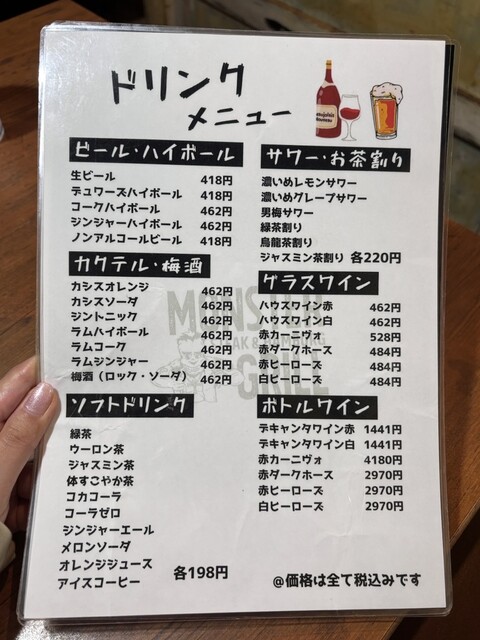 ドリンク
メニュー
ビール・ハイボール
生ビール 418円
デュワーズハイボール 418円
コークハイボール 462円
ジンジャーハイボール 462円
ノンアルコールビール 418円
カクテル・梅酒
カシスオレンジ 462円
カシスソーダ 462円
ジントニック 462円
ラムハイボール 462円
ラムコーク 462円
ラムジンジャー 462円
梅酒（ロック・ソーダ） 462円
ソフトドリンク
緑茶
ウーロン茶
ジャスミン茶
体すこやか茶
コカコーラ
コーラゼロ
ジンジャーエール
メロンソーダ
オレンジジュース
アイスコーヒー 各198円
サワー・お茶割り
濃いめレモンサワー
濃いめグレープサワー
男梅サワー
緑茶割り
烏龍茶割り
ジャスミン茶割り 各220円
グラスワイン
ハウスワイン赤 462円
ハウスワイン白 462円
赤カーニヴォ 528円
赤ダークホース 484円
赤ヒーローズ 484円
白ヒーローズ 484円
ボトルワイン
デキャンタワイン赤 1441円
デキャンタワイン白 1441円
赤カーニヴォ 4180円
赤ダークホース 2970円
赤ヒーローズ 2970円
白ヒーローズ 2970円
@価格は全て税込みです
MONSTER
GRILL